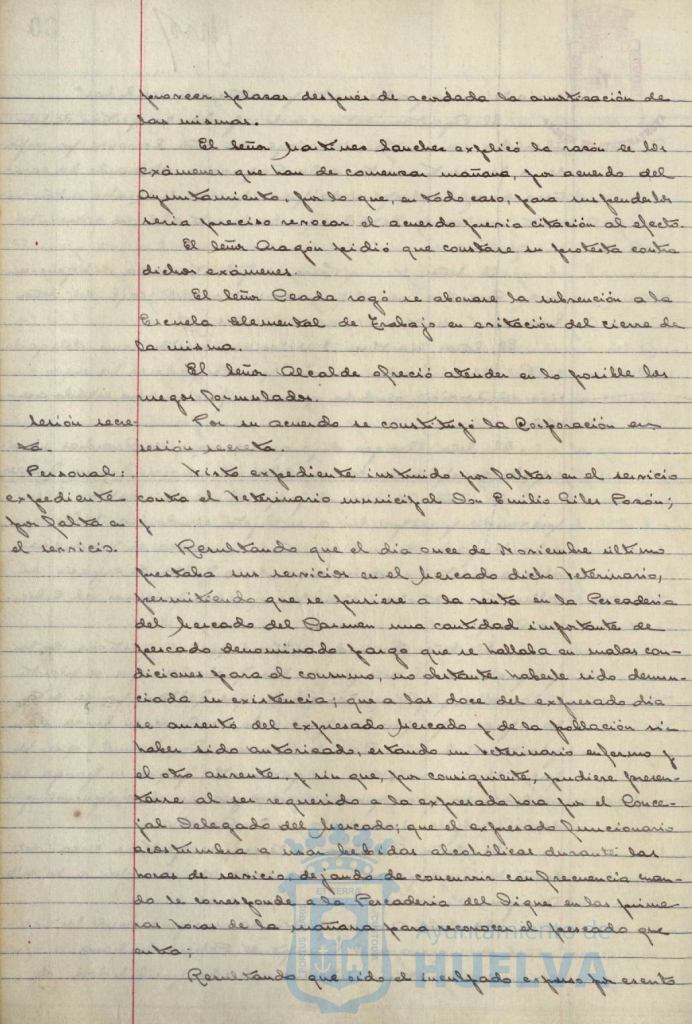 proveer plazas después de acordada la amortización de
las mismas.
El Señor Martínez Sánchez explicó la razón de los
exámenes que han de comenzar mañana, por acuerdo del
Ayuntamiento, por lo que, en todo caso, para suspenderlos
sería preciso revocar el acuerdo previa citación al efecto.
El Señor Aragón pidió que constase su protesta contra
dichos exámenes.
El Señor Peada rogó se abonase la subvención a la
Escuela Elemental de Trabajo en evitación del cierre de
la misma.
El Señor Alcalde ofreció atender en lo posible los
ruegos formulados.
Sesión secre-
ta.
Por su acuerdo se constituyó la Corporación en
sesión secreta.
Personal:
expediente
por falta en
el servicio.
Visto expediente instruido por faltas en el servicio
contra el Veterinario municipal Don Emilio Giles Pozón;
y
Resultando que el día once de Noviembre último
prestaba sus servicios en el Mercado dicho Veterinario,
permitiendo que se pusiere a la venta en la Pescadería
del Mercado del Carmen una cantidad importante de
pescado denominado pargo que se hallaba en malas con-
diciones para el consumo, no obstante haberle sido denun-
ciada su existencia; que a las doce del expresado día
se ausentó del expresado Mercado y de la población sin
haber sido autorizado, estando un Veterinario enfermo y
el otro ausente, y sin que, por consiguiente, pudiere presen-
tarse al ser requerido a la expresada hora por el Conce-
jal Delegado del Mercado; que el expresado funcionario
acostumbra a usar bebidas alcohólicas durante las
horas de servicio, dejando de concurrir con frecuencia cuan-
do le corresponde a la Pescadería del Dique en las prime-
ras horas de la mañana para reconocer el pescado que
entra;
Resultando que oído el inculpado expuso por escrito
Ayuntamiento de
HUELVA